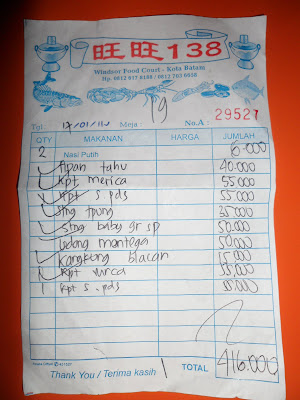 旺旺138
Windsor Food Court - Kota Batam
Tgl : 17/01/ Meja : No.A : 29527
QTY MAKANAN HARGA JUMLAH
2 Nasi Putih 6.000
tahu 40.000
Kpt merica 55.000
Kpt s pds 55.000
Stng tpung 35.000
Stng baby gr sp 50.000
Udang mantega 50.000
Kangkung blacan 15.000
Kpt mrca 55.000
1 kpt s. pds 55.000
Thank You / Terima kasih TOTAL 416.000